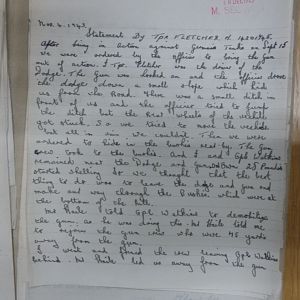 M. SEC
Nov. 4. 1943.
Statement By Tpr FLETCHER H.
After being in action against German Tanks on Sept 15
we were ordered by the officer to bring the Gun
out of action. I Tpr. Fletcher was the driver of the
Dodge. The Gun was hooked on and the officer drove
the dodge down a small slope which hid
us from the Road. There was a small ditch in
front of us and the officer tried to jump
the ditch but the Rear wheels of the vehicle
got stuck. So we tried to move the vechicle
but all in vain we couldn't. Then we were
ordered to hide in the bushes near by. The Gun
crew took to the bushes. And I and Cpl Watkins
remained near the Dodge and Gun. 25 Pounders
started shelling So we thought that the best
thing to do was to leave the dodge and gun and
make our way through the Bushes which were at
the bottom of the hill.
told Cpl Watkins to demobilise
the gun: as he was doing this Mr told me
to rejoin the gun crew who were 45 yards
away from the gun.
I went and joined the crew leaving Cpl Watkins
behind. Mr led us away from the gun